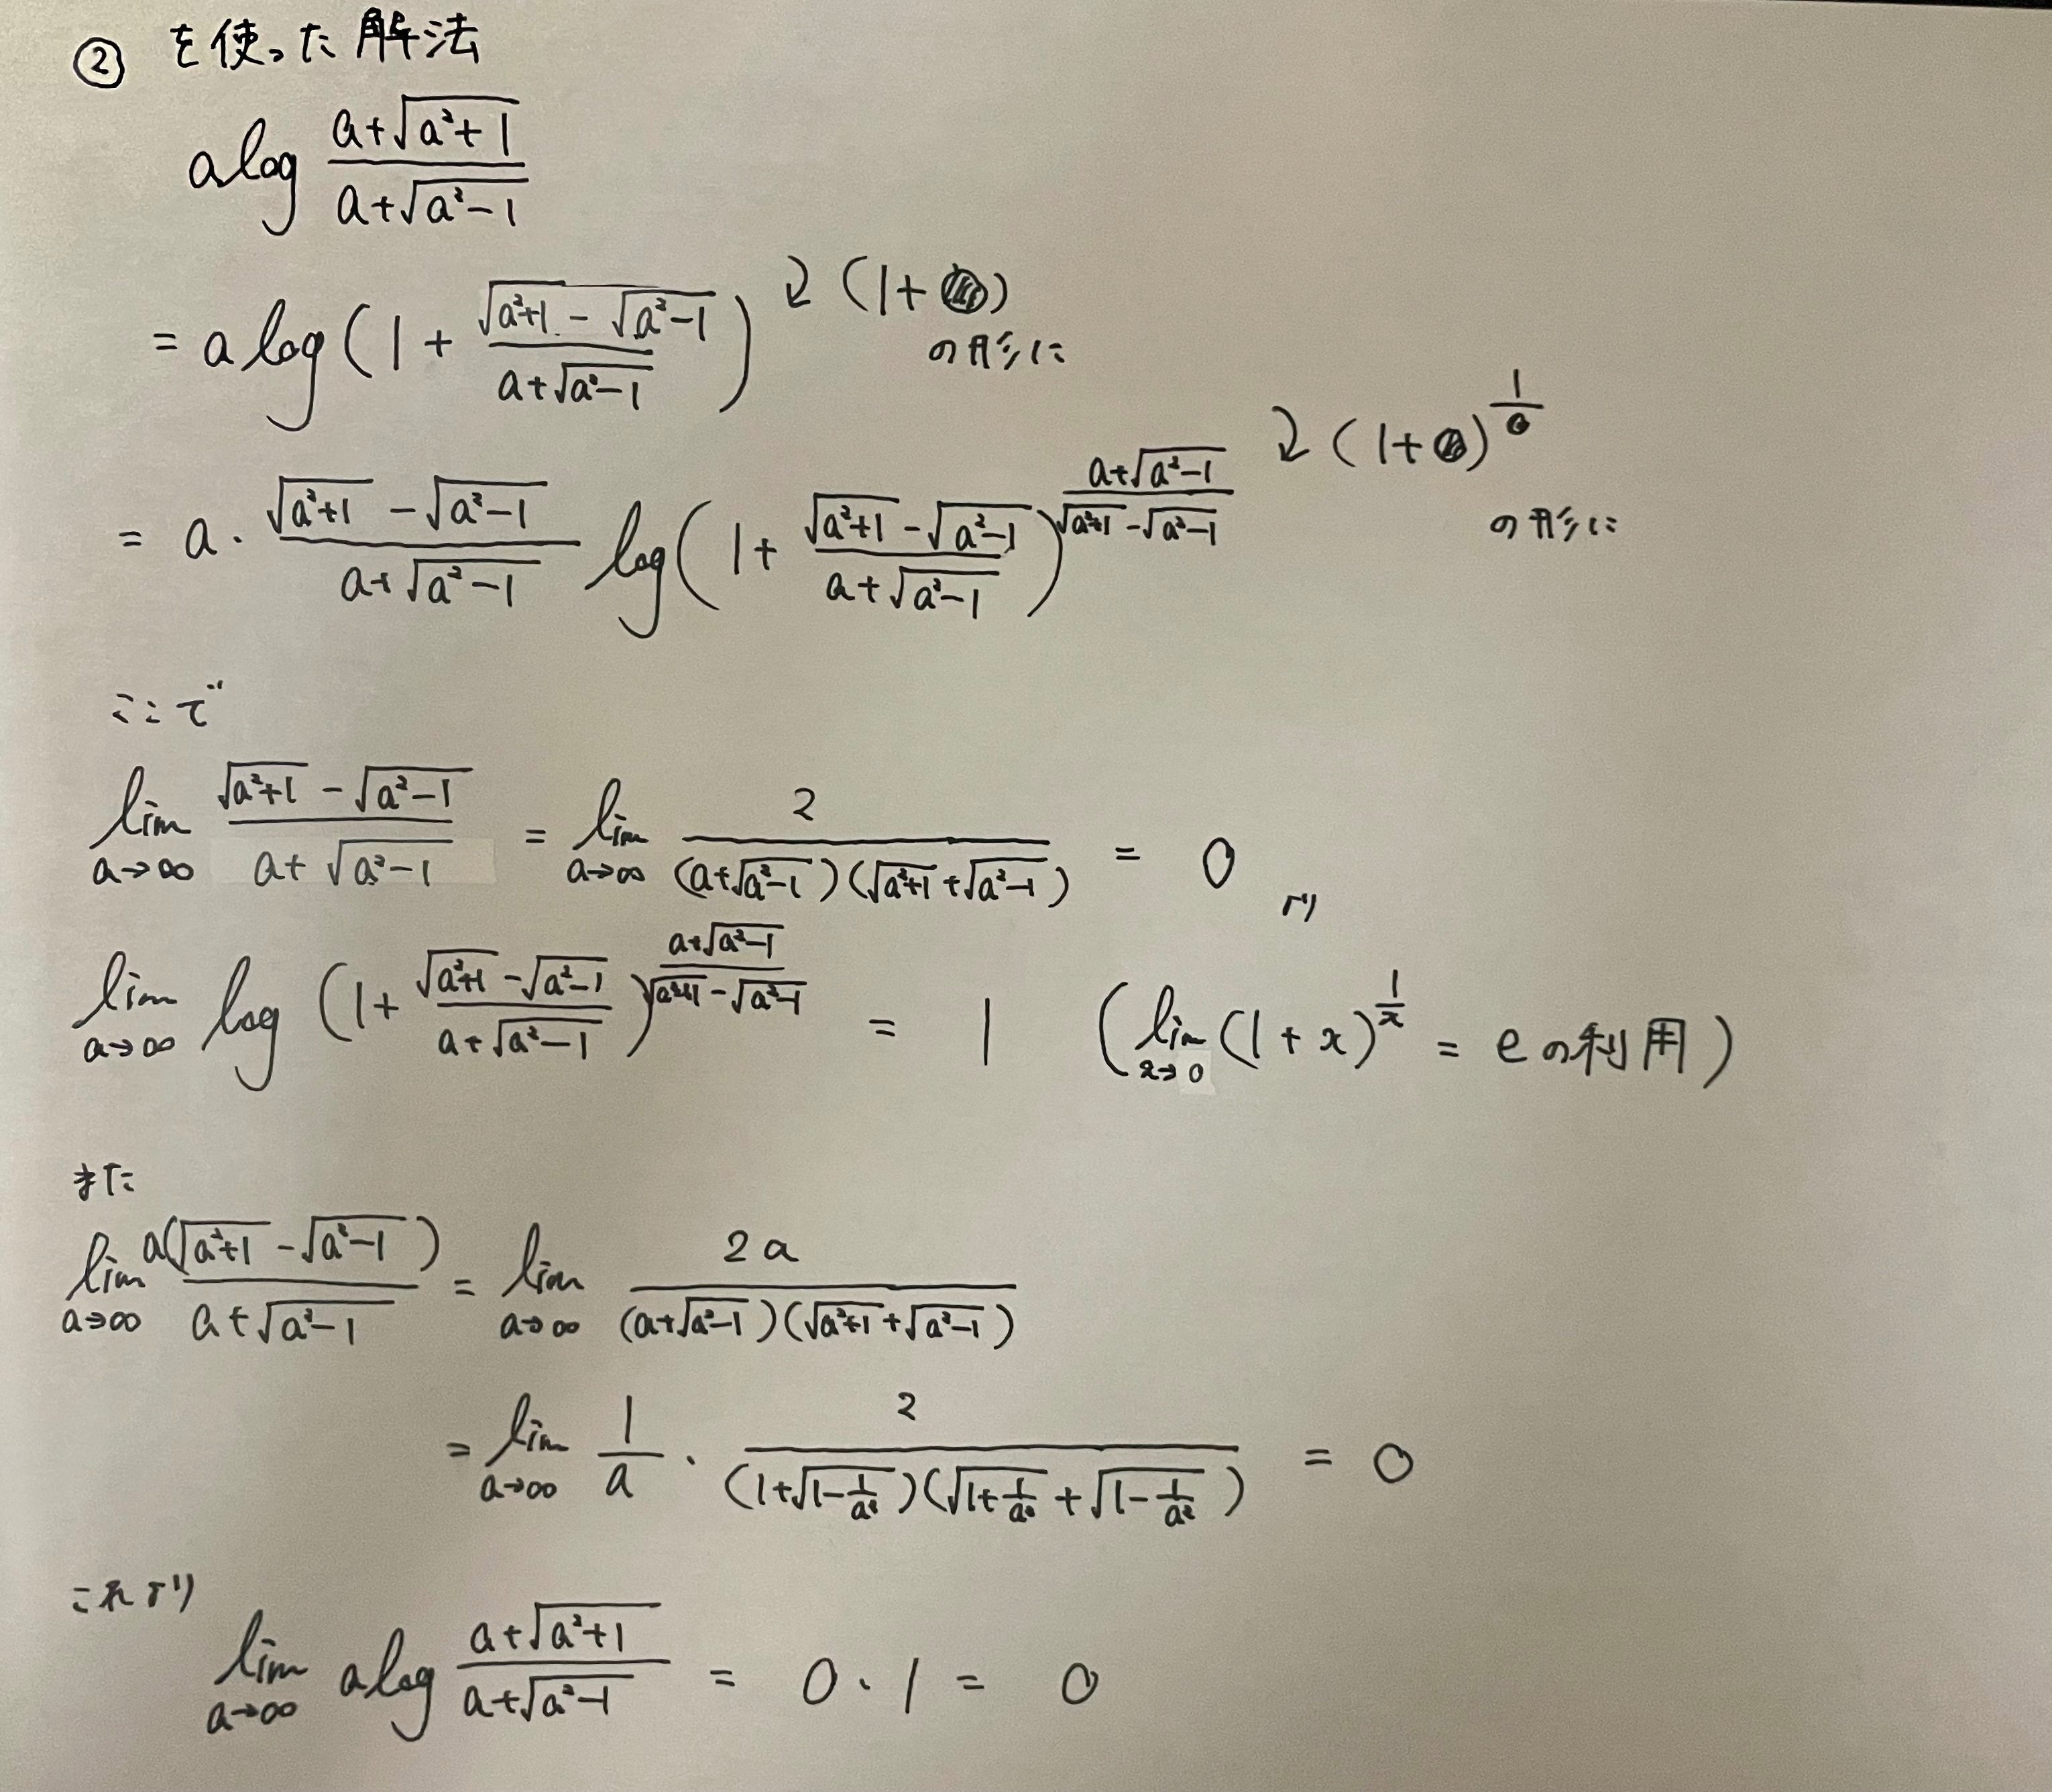 ② を使った解法
a log (a+√(a²+1))/(a+√(a²-1))
= a log(1 + (√(a²+1) - √(a²-1))/(a+√(a²-1))) ↓ (1+●) の形に
= a・(√(a²+1) - √(a²-1))/(a+√(a²-1)) log(1 + (√(a²+1) - √(a²-1))/(a+√(a²-1)))^((a+√(a²-1))/(√(a²+1) - √(a²-1))) ↓ (1+●)^(1/●) の形に
ここで
lim_{a→∞} (√(a²+1) - √(a²-1))/(a+√(a²-1)) = lim_{a→∞} 2/((a+√(a²-1))(√(a²+1)+√(a²-1))) = 0 より
lim_{a→∞} log (1+ (√(a²+1) - √(a²-1))/(a+√(a²-1)))^((a+√(a²-1))/(√(a²+1) - √(a²-1))) = 1 (lim_{x→0} (1+x)^(1/x) = e の利用)
また
lim_{a→∞} a(√(a²+1) - √(a²-1))/(a+√(a²-1)) = lim_{a→∞} 2a/((a+√(a²-1))(√(a²+1)+√(a²-1)))
= lim_{a→∞} 1/a・2/((1+√(1-1/a²))(√(1+1/a²)+√(1-1/a²))) = 0
これより
lim_{a→∞} a log (a+√(a²+1))/(a+√(a²-1)) = 0・1 = 0